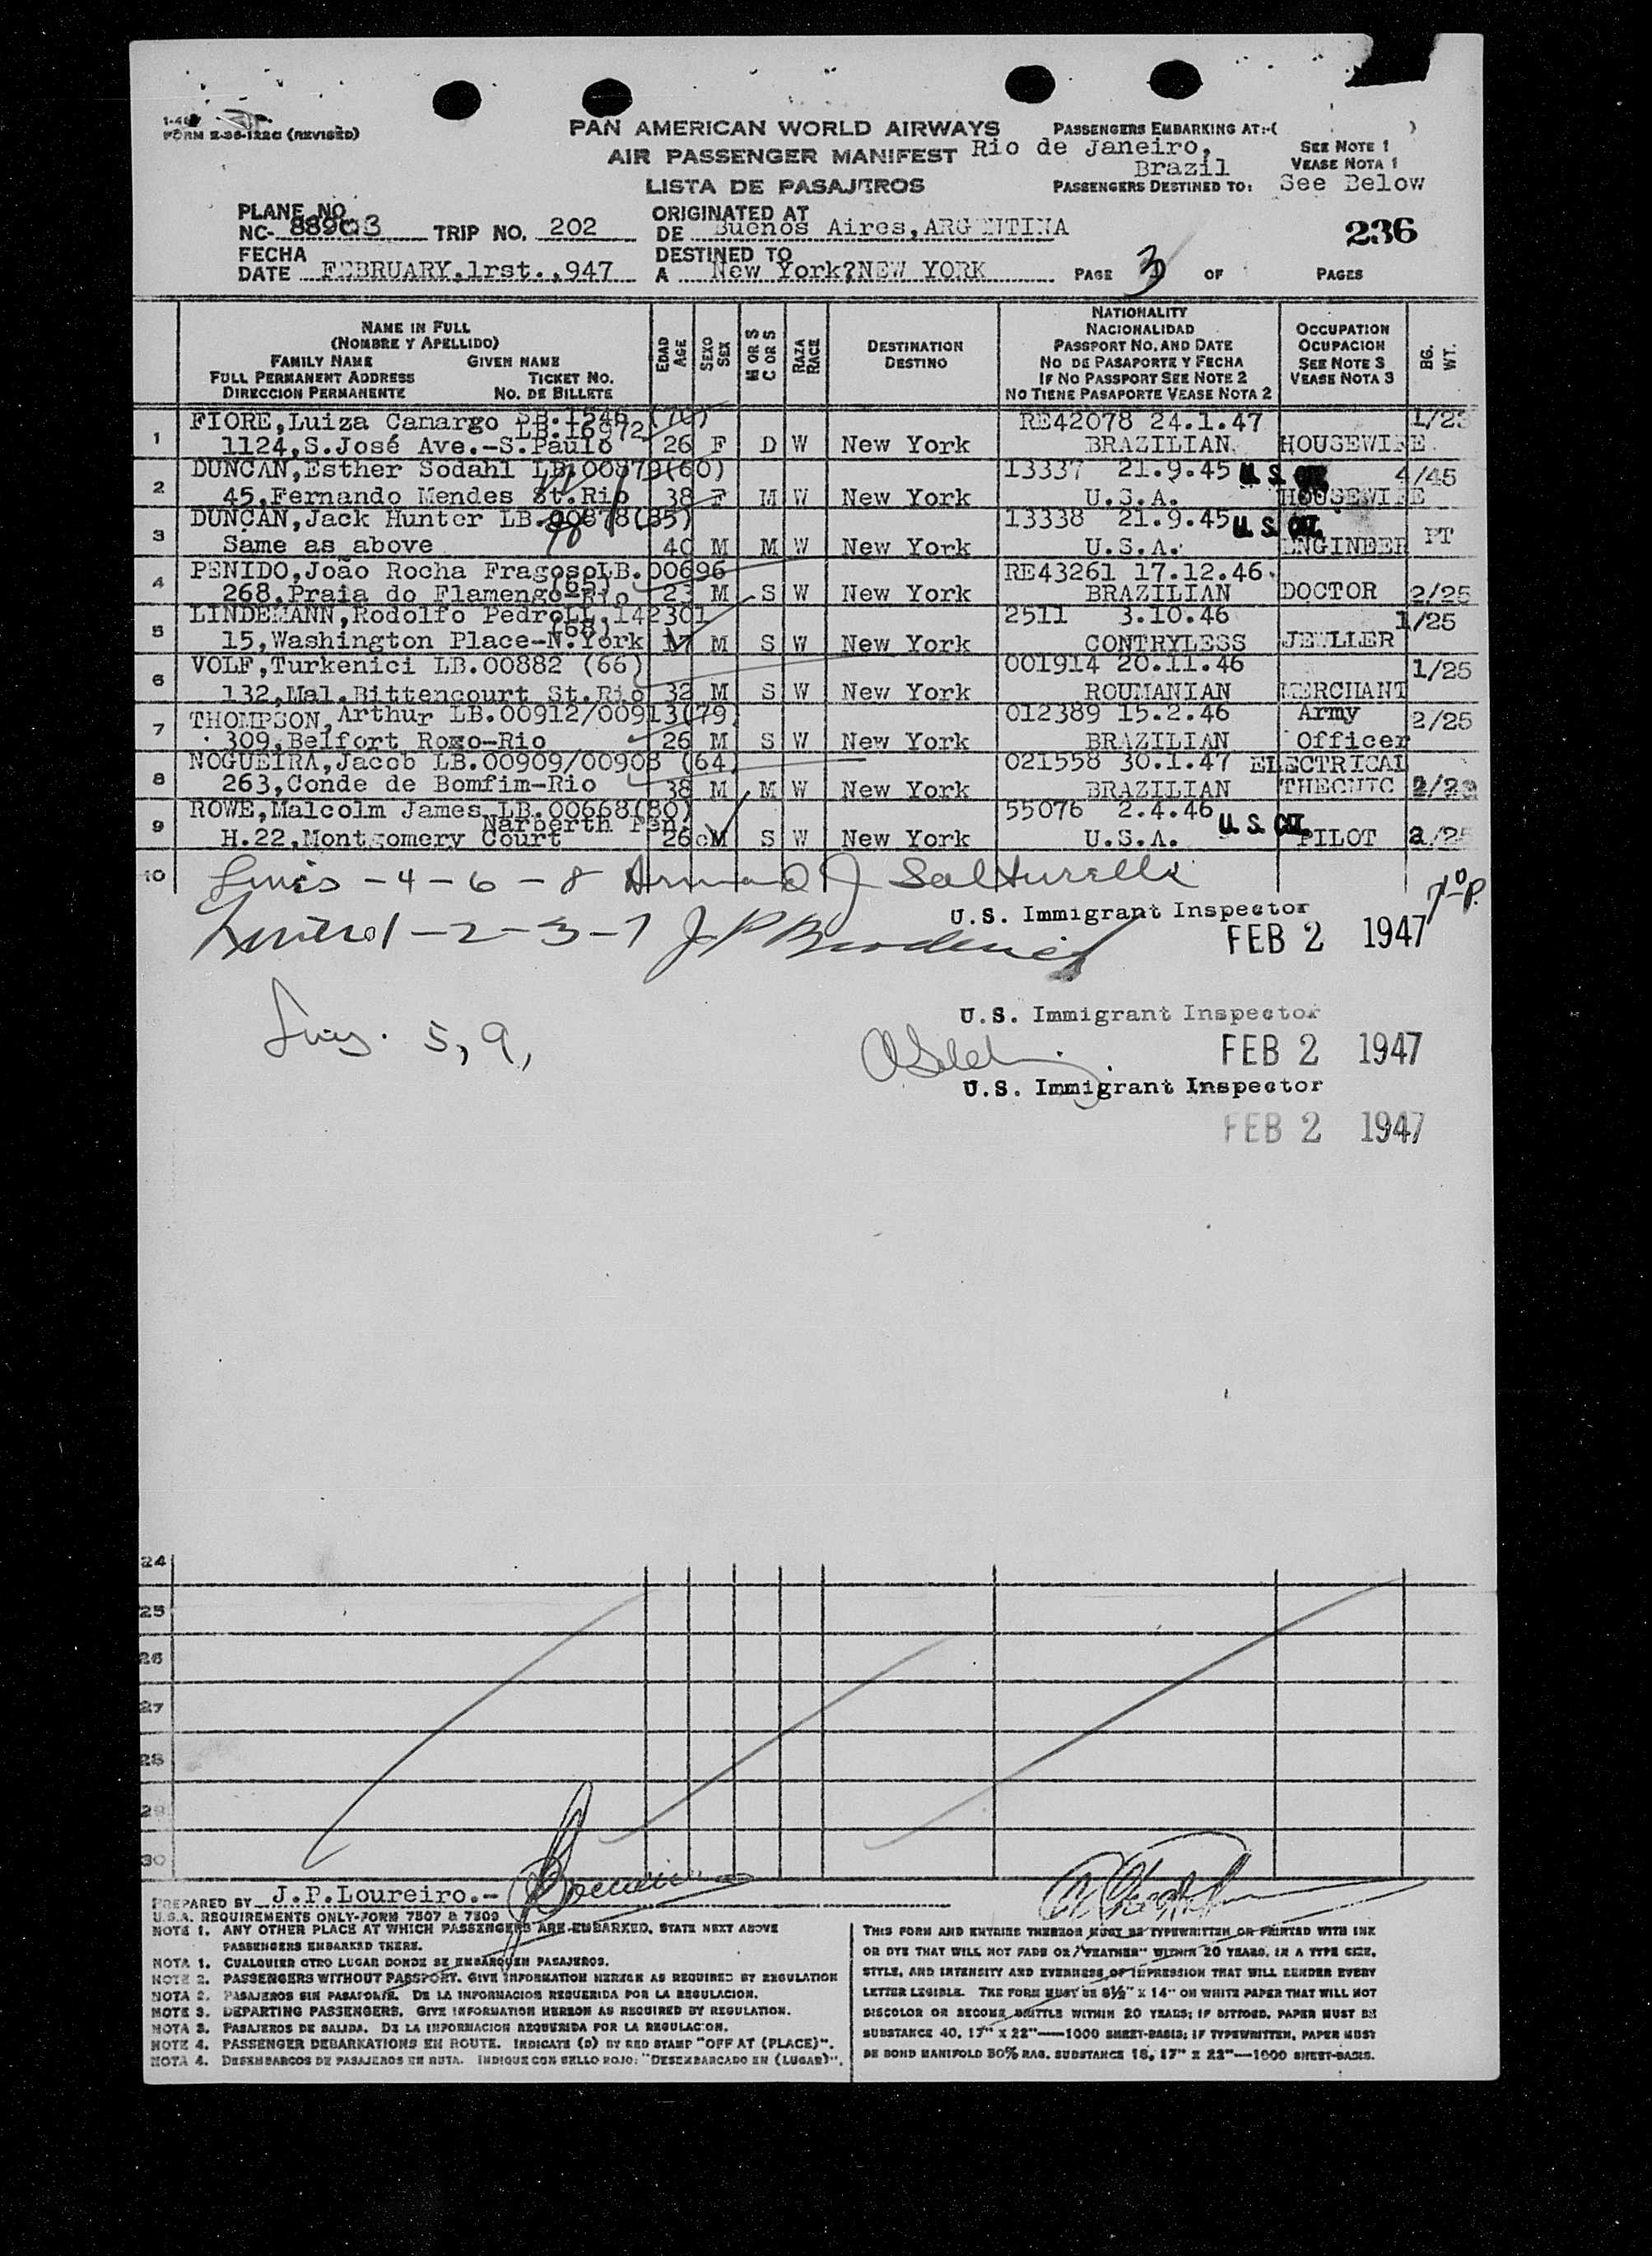 FORM E-36-122C (REVISED)
PAN AMERICAN WORLD AIRWAYS
AIR PASSENGER MANIFEST
LISTA DE PASAJEROS
PASSENGERS EMBARKING AT:-( )
Rio de Janeiro,
Brazil
SEE NOTE 1
VEASE NOTA 1
PASSENGERS DESTINED TO: See Below
PLANE NO.
NC- 88903 TRIP NO. 202
ORIGINATED AT
DE Buenos Aires,ARGENTINA
236
FECHA
DATE FEBRUARY,1rst.,947
DESTINED TO
A New York?NEW YORK
PAGE 3 OF PAGES
NAME IN FULL
(NOMBRE Y APELLIDO)
FAMILY NAME GIVEN NAME
FULL PERMANENT ADDRESS TICKET NO.
DIRECCION PERMANENTE NO. DE BILLETE
EDAD
AGE
SEXO
SEX
M OR S
C OR S
RAZA
RACE
DESTINATION
DESTINO
NATIONALITY
NACIONALIDAD
PASSPORT NO. AND DATE
NO DE PASAPORTE Y FECHA
IF NO PASSPORT SEE NOTE 2
NO TIENE PASAPORTE VEASE NOTA 2
OCCUPATION
OCUPACION
SEE NOTE 3
VEASE NOTA 3
BG.
WT.
FIORE,Luiza Camargo SB.1546 (70) RE42078 24.1.47 1/23
LB.16972
1 1124,S.José Ave.-S.Paulo 26 F D W New York BRAZILIAN. HOUSEWIFE
DUNCAN,Esther Sodahl LB.00879(60) 13337 21.9.45 U.S. CIT. 4/45
2 45,Fernando Mendes St.Rio 38 F M W New York U.S.A. HOUSEWIFE
DUNCAN,Jack Hunter LB.00878(85) 13338 21.9.45 U.S. CIT.
3 Same as above 40 M M W New York U.S.A. ENGINEER PT
PENIDO,Joao Rocha Fragoso LB.00696 RE43261 17.12.46
4 268,Praia do Flamengo-Rio 23 M S W New York BRAZILIAN DOCTOR 2/25
LINDEMANN,Rodolfo Pedro LL.142301 2511 3.10.46 1/25
(58)
5 15,Washington Place-N.York 17 M S W New York CONTRYLESS JEWLLER
VOLF,Turkenici LB.00882 (66) 001914 20.11.46 1/25
6 132,Mal.Bittencourt St.Rio 32 M S W New York ROUMANIAN MERCHANT
THOMPSON,Arthur LB.00912/00913(79) 012389 15.2.46 Army 2/25
7 309,Belfort Roxo-Rio 26 M S W New York BRAZILIAN Officer
NOGUEIRA,Jacob LB.00909/00908 (64) 021558 30.1.47 ELECTRICAL
8 263,Conde de Bomfim-Rio 38 M M W New York BRAZILIAN THECNIC 2/23
ROWE,Malcolm James LB.00668(80) 55076 2.4.46 U.S. CIT.
Narberth Pen.
9 H.22,Montgomery Court 26 M S W New York U.S.A. PILOT 2/25
10 Lines - 4 - 6 - 8
U.S. Immigrant Inspector
- 2 - 3 - 7
FEB 2 1947
U.S. Immigrant Inspector
5, 9,
FEB 2 1947
U.S. Immigrant Inspector
FEB 2 1947
24
25
26
27
28
29
30
PREPARED BY J.P.Loureiro.-
U.S.A. REQUIREMENTS ONLY-FORM 7507 & 7509
NOTE 1. ANY OTHER PLACE AT WHICH PASSENGERS ARE EMBARKED, STATE NEXT ABOVE
PASSENGERS EMBARKED THERE.
NOTA 1. CUALQUIER OTRO LUGAR DONDE SE EMBARQUEN PASAJEROS.
NOTE 2. PASSENGERS WITHOUT PASSPORT. GIVE INFORMATION HEREON AS REQUIRED BY REGULATION
NOTA 2. PASAJEROS SIN PASAPORTE. DE LA INFORMACION REQUERIDA POR LA REGULACION.
NOTE 3. DEPARTING PASSENGERS. GIVE INFORMATION HEREON AS REQUIRED BY REGULATION.
NOTA 3. PASAJEROS DE SALIDA. DE LA INFORMACION REQUERIDA POR LA REGULACION.
NOTE 4. PASSENGER DEBARKATIONS EN ROUTE. INDICATE (D) BY RED STAMP "OFF AT (PLACE)".
NOTA 4. DESEMBARCOS DE PASAJEROS EN RUTA. INDIQUE CON SELLO ROJO: "DESEMBARCADO EN (LUGAR)".
THIS FORM AND ENTRIES THEREOR MUST BE TYPEWRITTEN OR PRINTED WITH INK
OR DYE THAT WILL NOT FADE OR "FEATHER" WITHIN 20 YEARS, IN A TYPE SIZE,
STYLE, AND INTENSITY AND EVENNESS OF IMPRESSION THAT WILL RENDER EVERY
LETTER LEGIBLE. THE FORM MUST BE 8½" X 14" ON WHITE PAPER THAT WILL NOT
DISCOLOR OR BECOME BRITTLE WITHIN 20 YEARS; IF DITTOED, PAPER MUST BE
SUBSTANCE 40, 17" X 22"—1000 SHEET-BASIS; IF TYPEWRITTEN, PAPER MUST
BE BOND MANIFOLD 50% RAG. SUBSTANCE 18, 17" X 22"—1000 SHEET-BASIS.